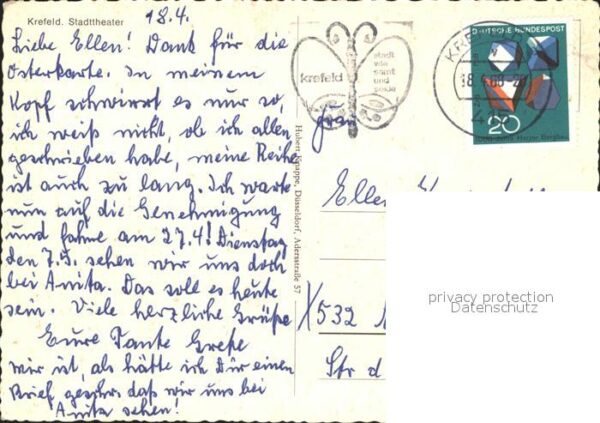 Krefeld. Stadttheater
18.4.
Liebe Ellen! Dank für die
Osterkarte. In meinem
Kopf schwirrt es nur so,
ich weiß nicht, ob ich allen
geschrieben habe, meine Reihe
ist auch zu lang. Ich warte
nun auf die Genehmigung
und fahre am 27.4! Dienstag
den 7.5. sehen wir uns doch
bei Anita. Das soll es heute
sein. Viele herzliche Grüße
Eure Tante Grete
Mir ist, als hätte ich Dir einen
Brief geschr. daß wir uns bei
Anita sehen!
Hubert Knappe, Düsseldorf, Adersstraße 57
krefeld
stadt
wie
samt
und
seide
DEUTSCHE BUNDESPOST
20
Frau
Ellen
532
Str d
privacy protection
Datenschutz